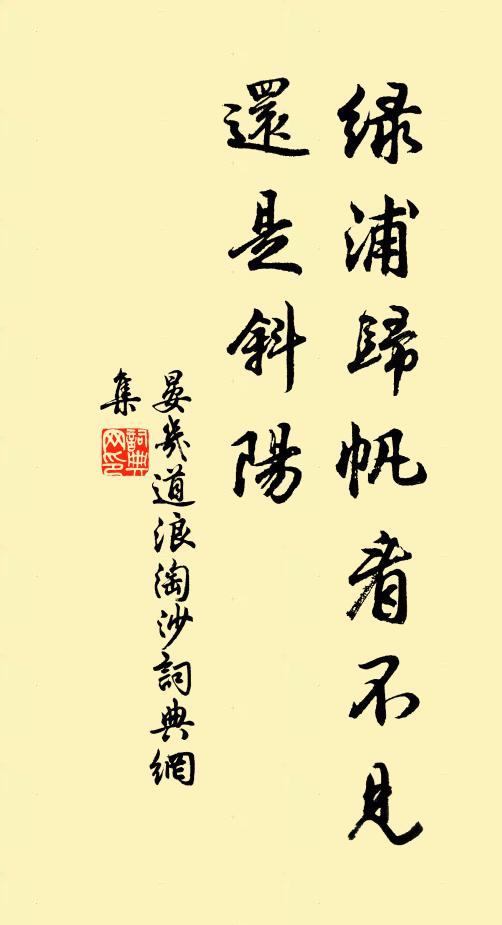 綠浦歸帆看不見
還是斜陽
晏幾道浪淘沙詞典網
集
詞典
网印